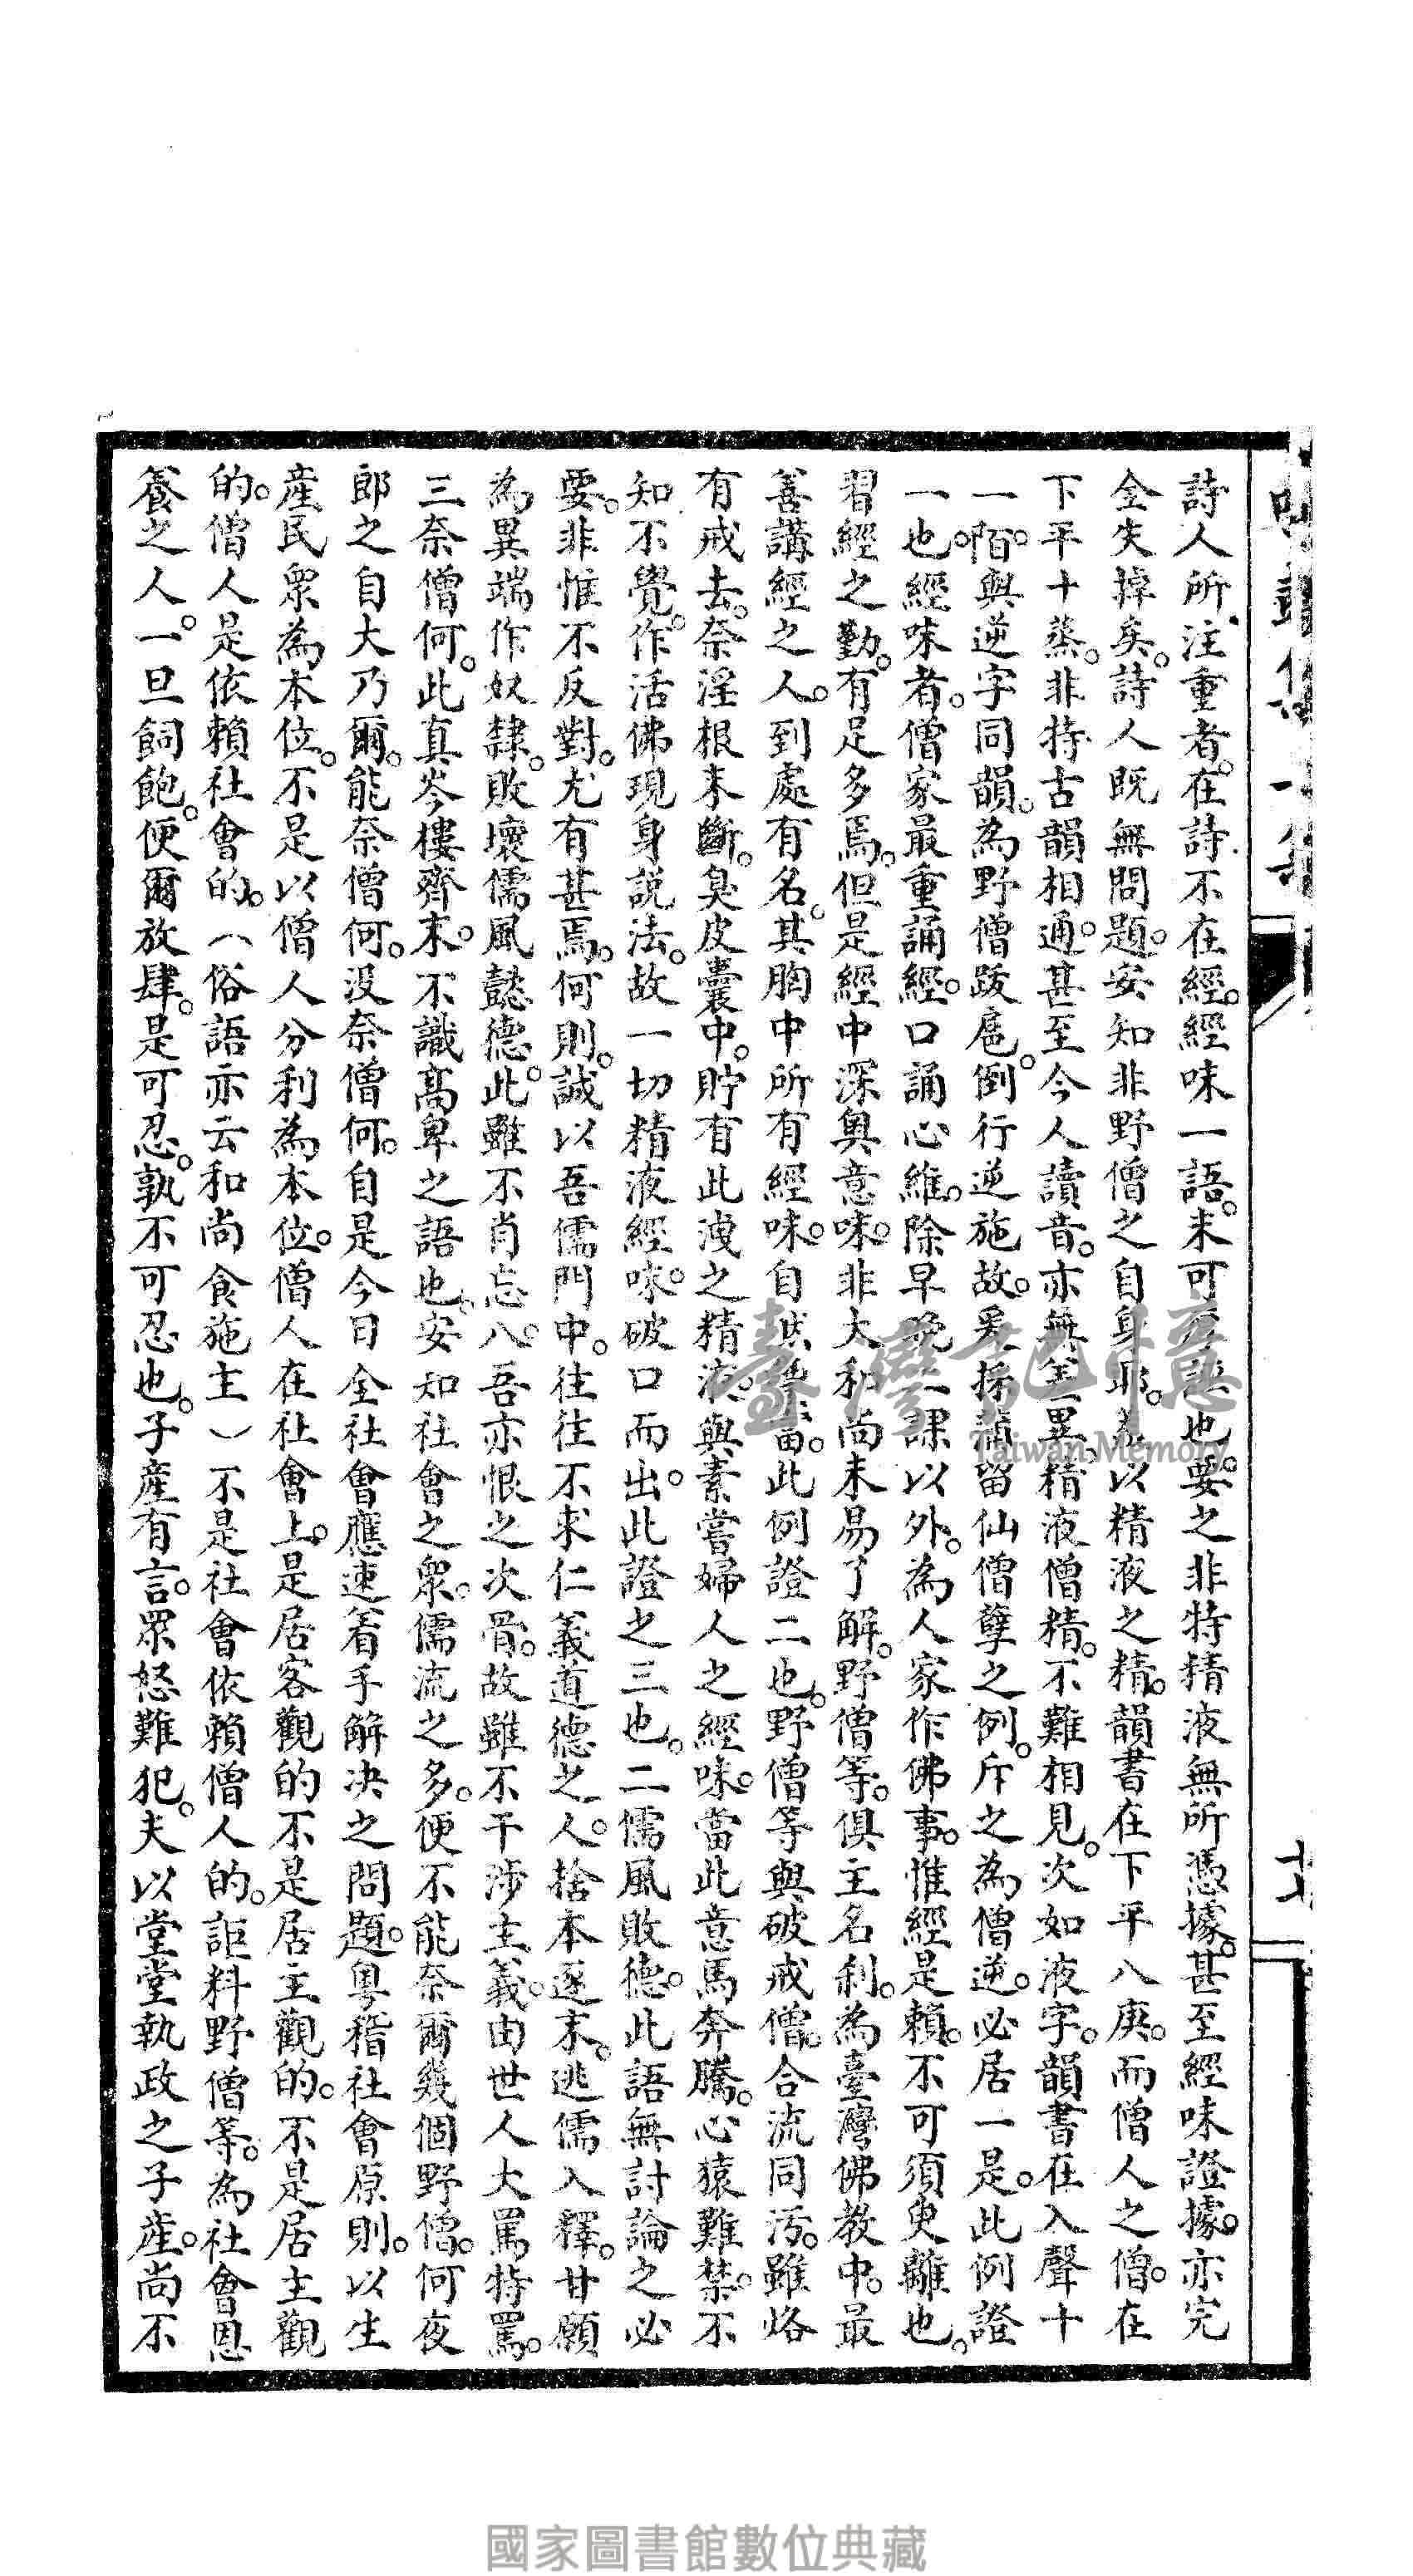 詩人所注重者。在詩不在經。經味一語。未可厚誣也。要之非特精液無所憑據。甚至經味證據。亦完
全失掉矣。詩人既無問題。安知非野僧之自身耶。蓋以精液之精。韻書在下平八庚。而僧人之僧。在
下平十蒸。非特古韻相通。甚至今人讀音。亦無差異。精液僧精。不難相見。次如液字。韻書在入聲十
一陌。與逆字同韻。為野僧跋扈。倒行逆施故。爰採蒲留仙僧孽之例。斥之為僧逆。必居一是。此例證
一也。經味者。僧家最重誦經。口誦心維。除早晚二課以外。為人家作佛事。惟經是賴。不可須臾離也。
習經之勤。有足多焉。但是經中深奧意味。非大和尚未易了解。野僧等。俱主名利。為臺灣佛教中。最
善講經之人。到處有名。其胸中所有經味。自然豐富。此例證二也。野僧等與破戒僧。合流同污。雖烙
有戒去。奈淫根未斷。臭皮囊中。貯有此洩之精液。與素嘗婦人之經味。當此意馬奔騰。心猿難禁。不
知不覺。作活佛現身說法。故一切精液經味。破口而出。此證之三也。二儒風敗德。此語無討論之必
要。非惟不反對。尤有甚焉。何則。誠以吾儒門中。往往不求仁義道德之人。捨本逐末。逃儒入釋。甘願
為異端作奴隸。敗壞儒風懿德。此雖不肖忘八。吾亦恨之次骨。故雖不干涉主義。由世人大罵特罵。
三奈僧何。此真岑樓齊末。不識高卑之語也。安知社會之眾。儒流之多。便不能奈爾幾個野僧。何夜
郎之自大乃爾。能奈僧何。沒奈僧何。自是今日全社會應速着手解決之問題。粵稽社會原則。以生
產民眾為本位。不是以僧人分利為本位。僧人在社會上。是居客觀的不是居主觀的。不是居主觀
的。僧人是依賴社會的。（俗語亦云和尚食施主）不是社會依賴僧人的。詎料野僧等。為社會恩
養之人。一旦飼飽。便爾放肆。是可忍。孰不可忍也。子產有言。眾怒難犯。夫以堂堂執政之子產。尚不
臺灣記憶
Taiwan Memory
國家圖書館數位典藏